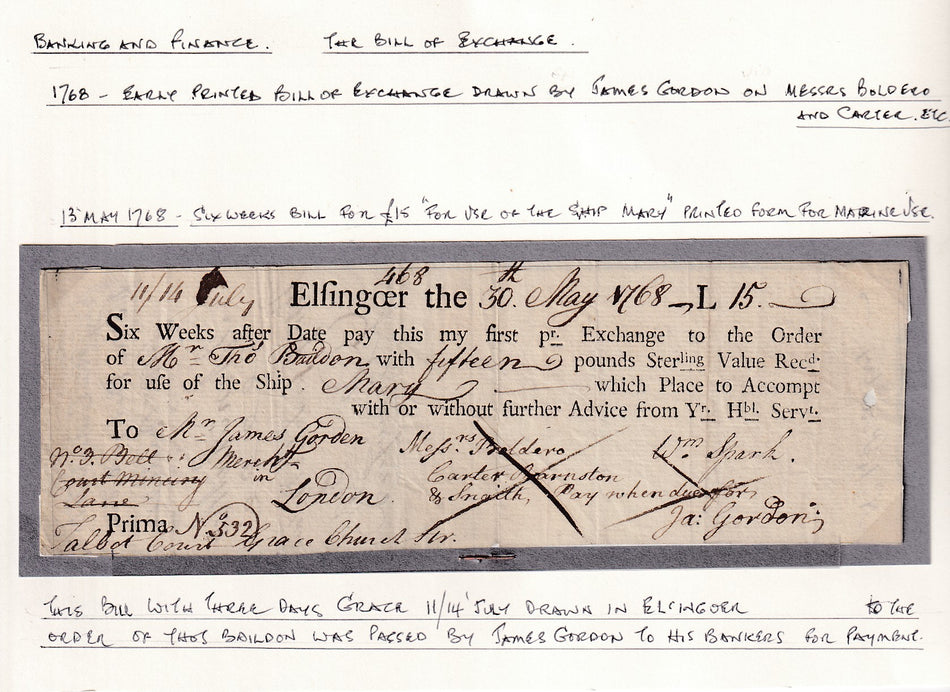 BANKING AND FINANCE. THE BILL OF EXCHANGE.
1768 - EARLY PRINTED BILL OF EXCHANGE DRAWN BY JAMES GORDON ON MESSRS BOLDERO
AND CARTER. ETC.
13 MAY 1768 - SIX WEEKS BILL FOR £15 "FOR USE OF THE SHIP MARY" PRINTED FORM FOR MARINE USE.
468
11/14 July Elsingœr the 30.th May 1768 L 15.
Six Weeks after Date pay this my first pr. Exchange to the Order
of Mr. Tho Baildon with fifteen pounds Sterling Value Recd.
for use of the Ship Mary which Place to Accompt
with or without further Advice from Yr. Hbl. Servt.
To Mr James Gorden Messrs Boldero Wm Spark.
No. 3. Bolt Mercht Carter Barnston
Court Mincing in & Snaith, Pay when due for
Lane London Ja: Gordon
Prima No 532
Talbot Court Grace Church Str.
THIS BILL WITH THREE DAYS GRACE 11/14 JULY DRAWN IN ELSINGOER TO THE
ORDER OF THOS BAILDON WAS PASSED BY JAMES GORDON TO HIS BANKERS FOR PAYMENT.